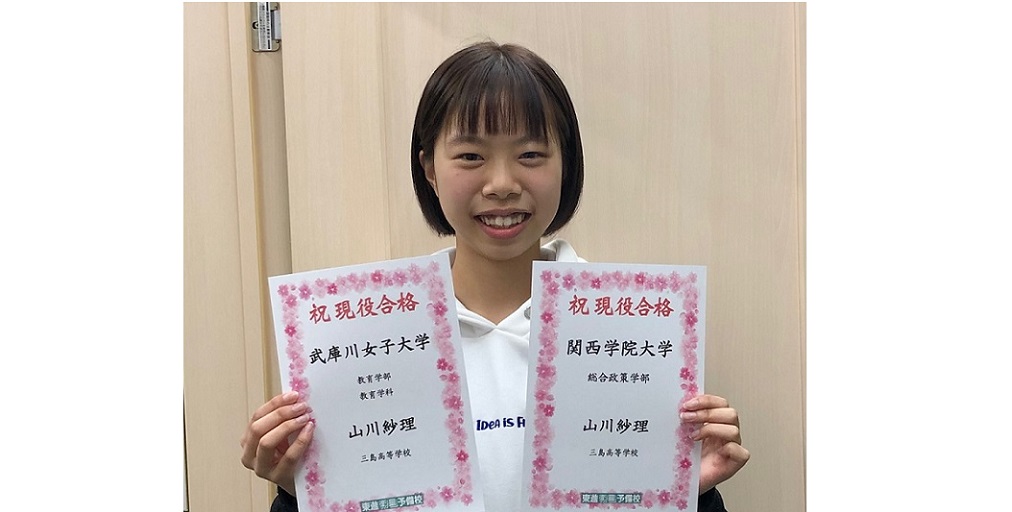 祝 現役合格
武庫川女子大学
教育学部
教育学科
山川紗理
三島高等学校
東進衛星予備校
祝 現役合格
関西学院大学
総合政策学部
山川紗理
三島高等学校
東進衛星予備校
IDEA IS